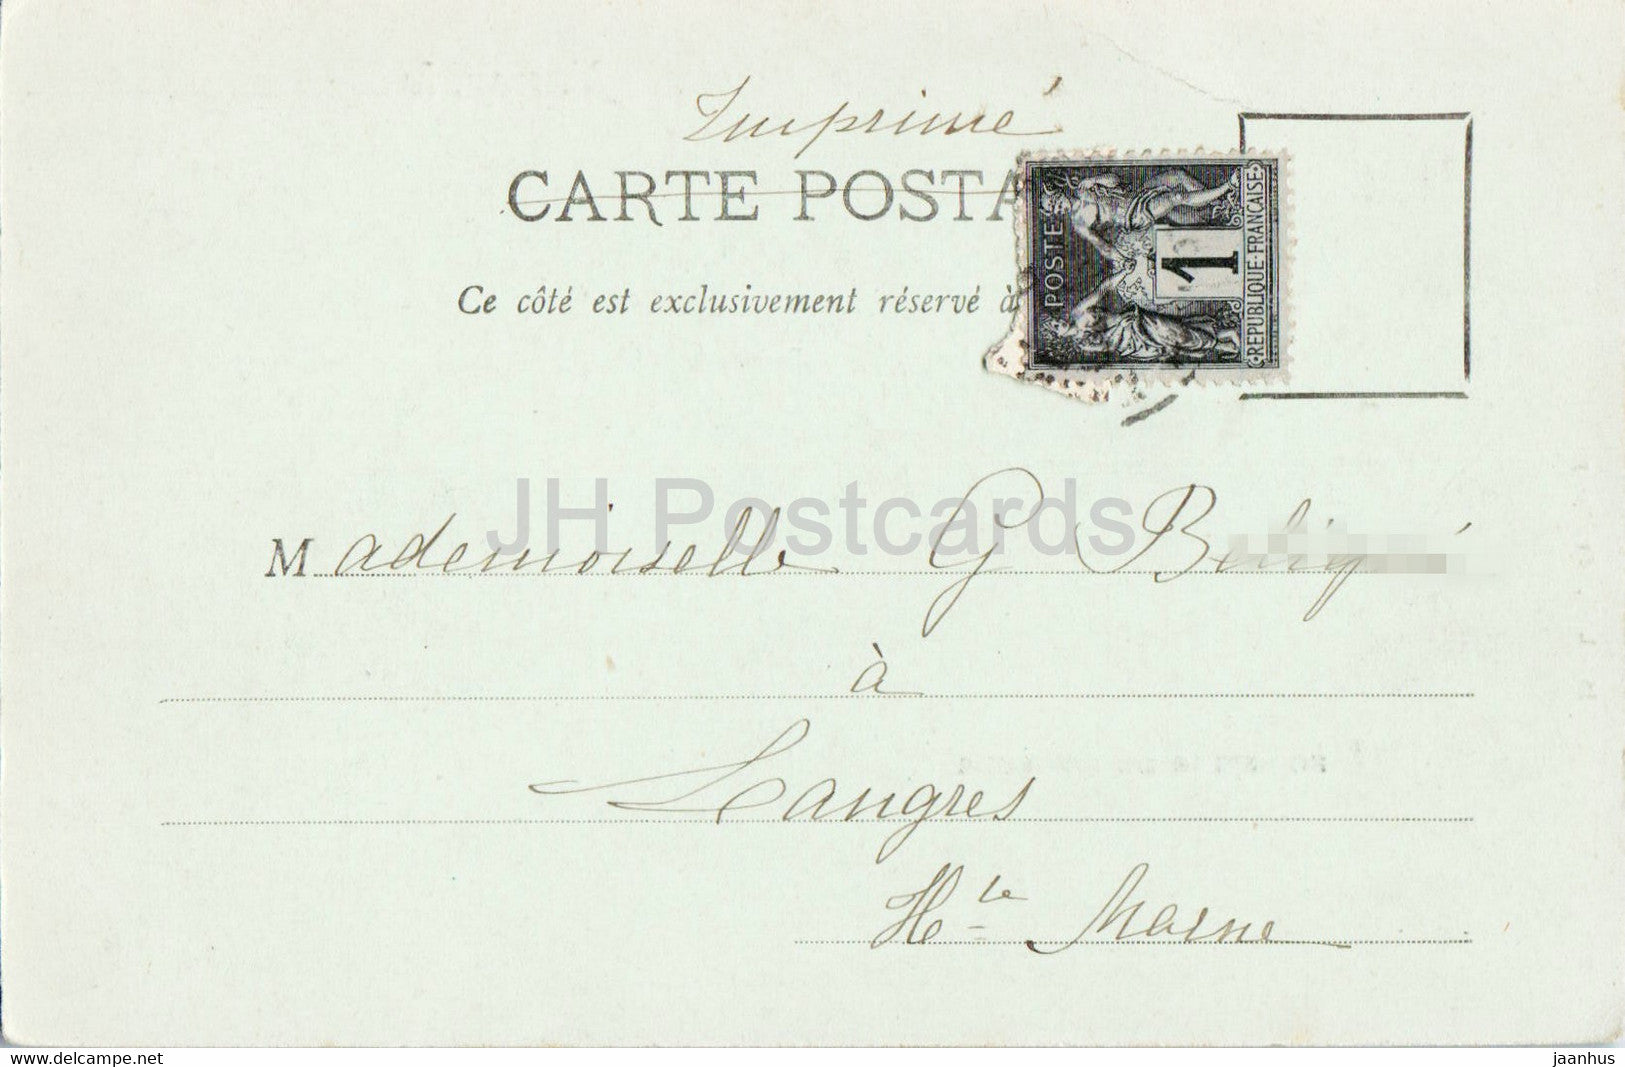 Imprimé
CARTE POSTA
Ce côté est exclusivement réservé à
POSTE
1
REPUBLIQUE FRANCAISE
JH Postcards
Mademoiselle G
à
Langres
Hte Marne
www.delcampe.net
jaanhus